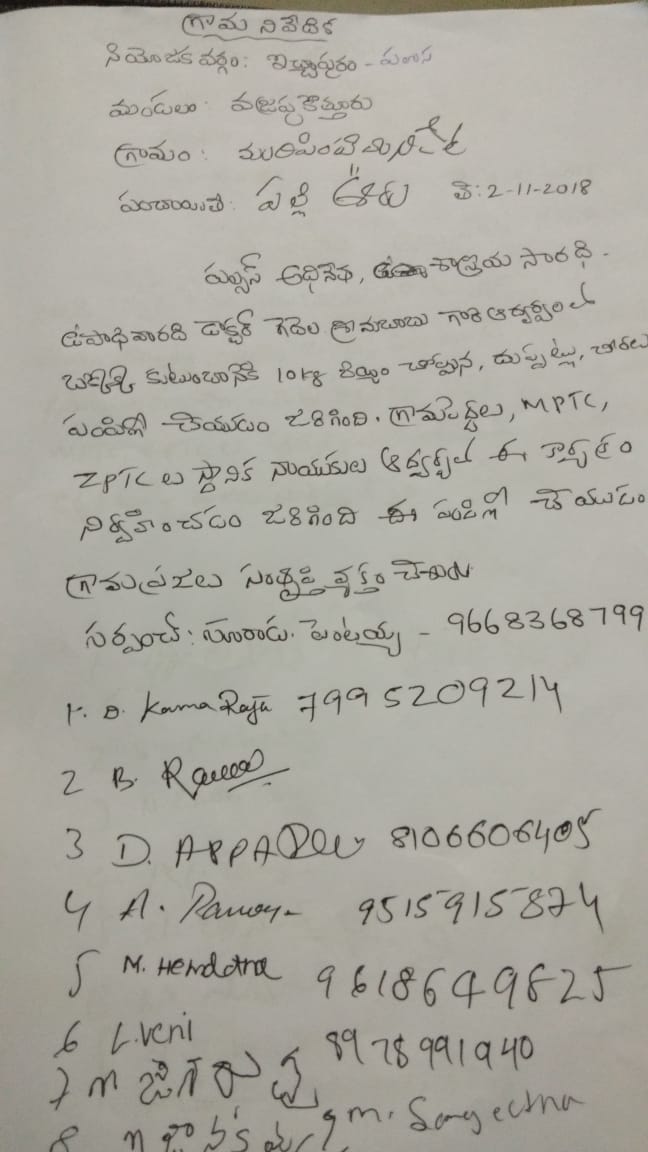 గ్రామ నివేదిక
నియోజక వర్గం: ఇచ్చాపురం - పలాస
మండలం: వజ్రపు కొత్తూరు
గ్రామం:
పంచాయితి: పల్లి ఊరు తే: 2-11-2018
పల్సస్ అధినేత, సారధి.
ఉపాధి వారధి డాక్టర్ గెదెల శ్రీనుబాబు గారి ఆధ్వర్యంలో
కుటుంబానికి 10 kg బియ్యం చొప్పున, దుప్పట్లు, చీరలు
పంపిణీ చేయడం జరిగింది. గ్రామపెద్దలు, MPTC,
ZPTC లు స్థానిక నాయకుల ఆధ్వర్యంలో ఈ కార్యక్రమం
నిర్వహించడం జరిగింది ఈ పంపిణీ చేయడం
గ్రామ ప్రజలు సంతృప్తి వ్యక్తం చేశారు.
సర్పంచ్: పెంటయ్య - 9668368799
1. D. Kama Raju 7995209214
2 B.
3 D. APPARao 8106606405
4 A. 9515915874
5 M. 9618649825
6 L. veni 8978991940
7 m
8 n 9 m. Sangeetha